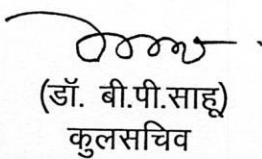 (डॉ. बी.पी.साहू)
कुलसचिव